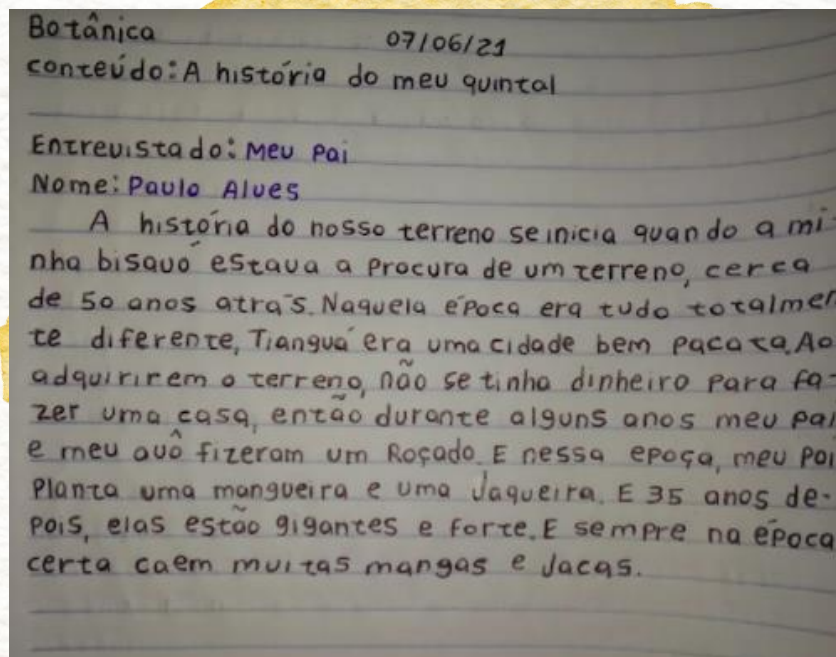 Botânica 07/06/21
conteúdo: A história do meu quintal
Entrevistado: Meu Pai
Nome: Paulo Alves
A história do nosso terreno se inicia quando a mi
nha bisavó estava a procura de um terreno, cerca
de 50 anos atrás. Naquela época era tudo totalmen
te diferente, Tianguá era uma cidade bem pacata. Ao
adquirirem o terreno, não se tinha dinheiro para fa-
zer uma casa, então durante alguns anos meu pai
e meu avô fizeram um Roçado. E nessa epoça, meu pai
Planta uma mangueira e uma Jaqueira. E 35 anos de-
pois, elas estão gigantes e forte. E sempre na época
certa caem muitas mangas e Jacas.